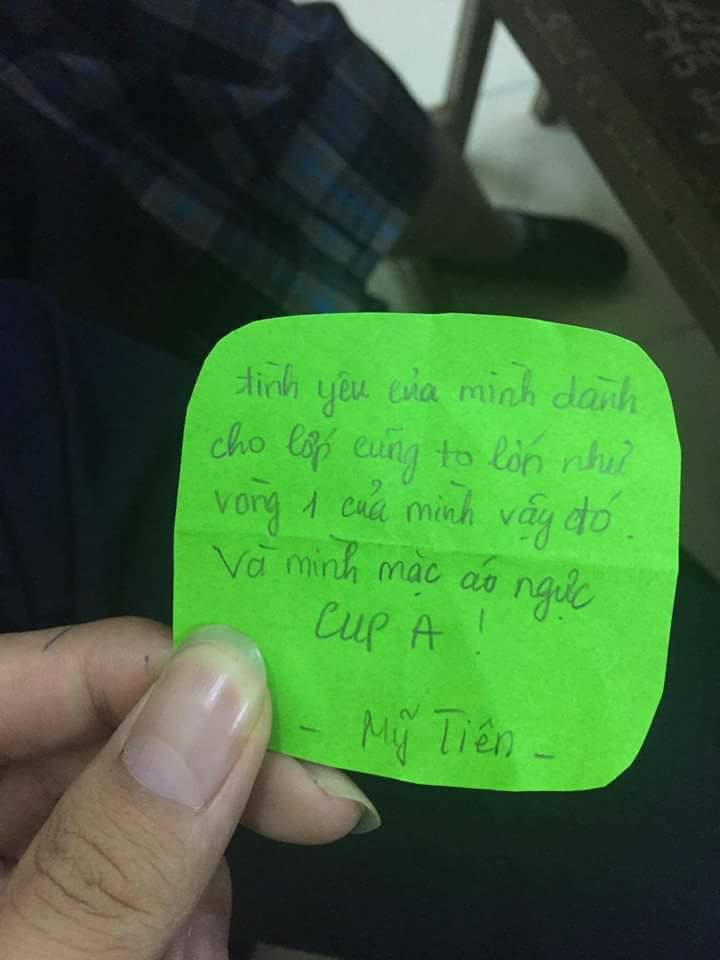 tình yêu của mình dành
cho lớp cũng to lớn như
vòng 1 của mình vậy đó.
Và mình mặc áo ngực
CUP A !
- Mỹ Tiên -